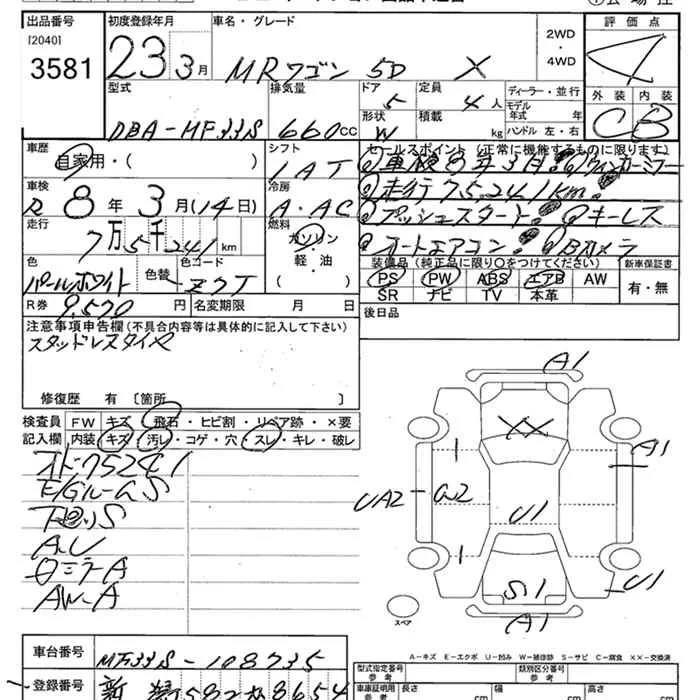 出品番号
[2040]
3581
初度登録年月
23 3月
車名・グレード
MRワゴン 5D X
2WD
・
4WD
評価点
4
外装 内装
C B
型式
DBA-MF33S
排気量
660cc
ドア
5
定員
4人
形状
W
積載
kg
ディーラー・並行
モデル
年式 年
ハンドル 左・右
車歴
自家用・( )
シフト
IAT
セールスポイント (正常に機能するものに限ります)
車検8年3月 ウィンカーミラー
走行75241km
プッシュスタート キーレス
オートエアコン Bカメラ
車検
R 8年 3月(14日)
冷房
A・AC
走行
7万5千241km
燃料
ガソリン
軽・油
( )
色
パールホワイト
色替
色コード
Z7T
R券 9,570円
名変期限 月 日
装備品 (純正品に限り○をつけてください)
PS PW ABS エアB AW
SR ナビ TV 本革
新車保証書
有・無
後日品
注意事項申告欄(不具合内容等は具体的に記入して下さい)
スタッドレスタイヤ
修復歴 有 〔箇所
検査員
記入欄
FW キズ・飛石・ヒビ割・リペア跡・×要
内装 キズ・汚レ・コゲ・穴・スレ・キレ・破レ
オド75241
E/GルームS
下回りS
A.U
ロミテA
AW-A
A1
XX
A1
UA2
W2
U1
U1
S1
A1
スペア
A-キズ E-エクボ U-凹み W-補修跡 S-サビ C-腐食 ××-交換済
車台番号
MF33S-108735
登録番号
型式指定番号
参考
類別区分番号
参考
車庫証明用
参考
長さ
cm
幅
cm
高さ
cm